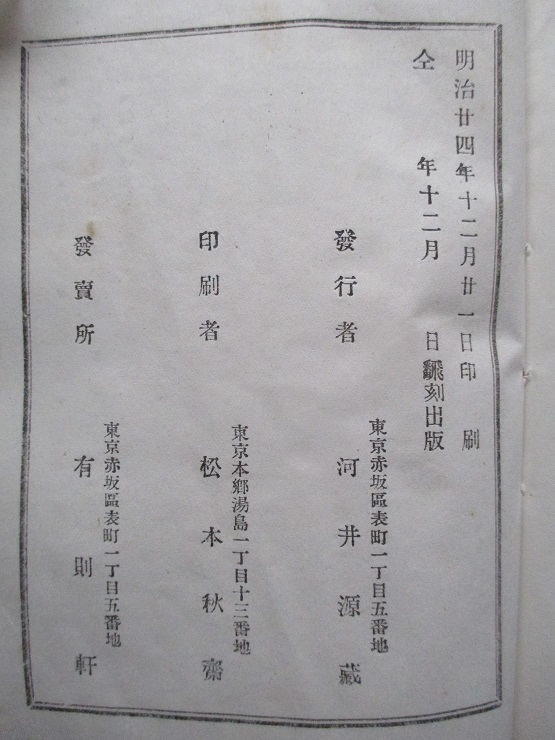 明治廿四年十二月廿一日印刷
仝年十二月日飜刻出版
發行者
東京赤坂區表町一丁目五番地
河井源藏
印刷者
東京本郷湯島一丁目十三番地
松本秋齋
發賣所
東京赤坂區表町一丁目五番地
有則軒